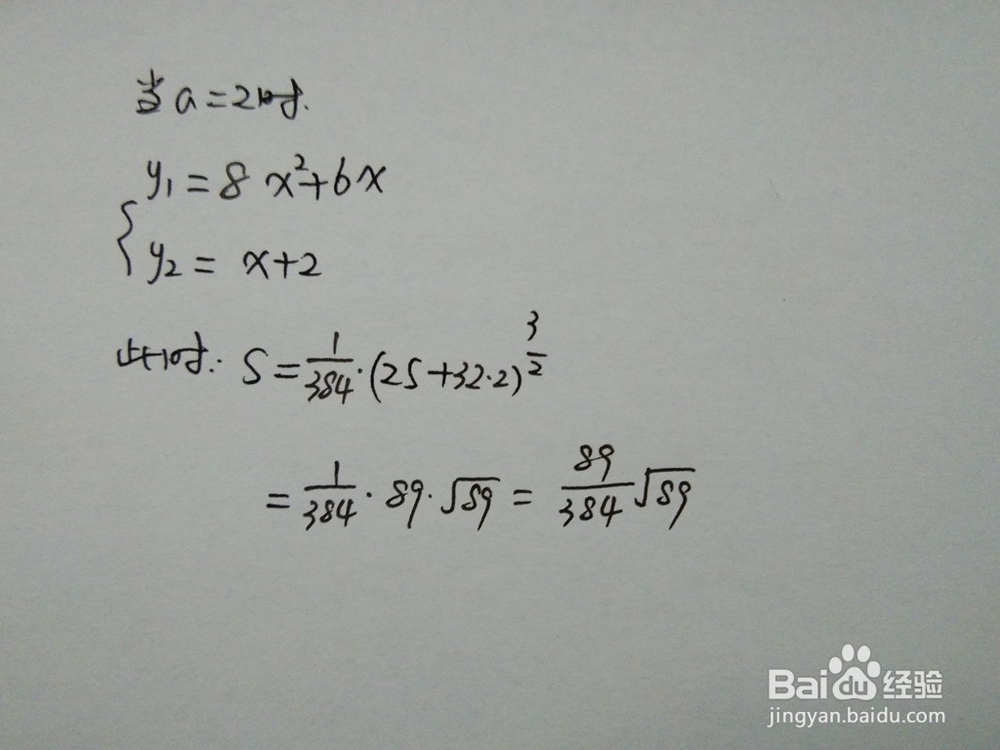 当a=2时.
y₁=8x²+6x
y₂=x+2
此时: S=1/384·(25+32·2)^(3/2)
=1/384·89·√89=89/384√89
Baidu经验
jingyan.baidu.com